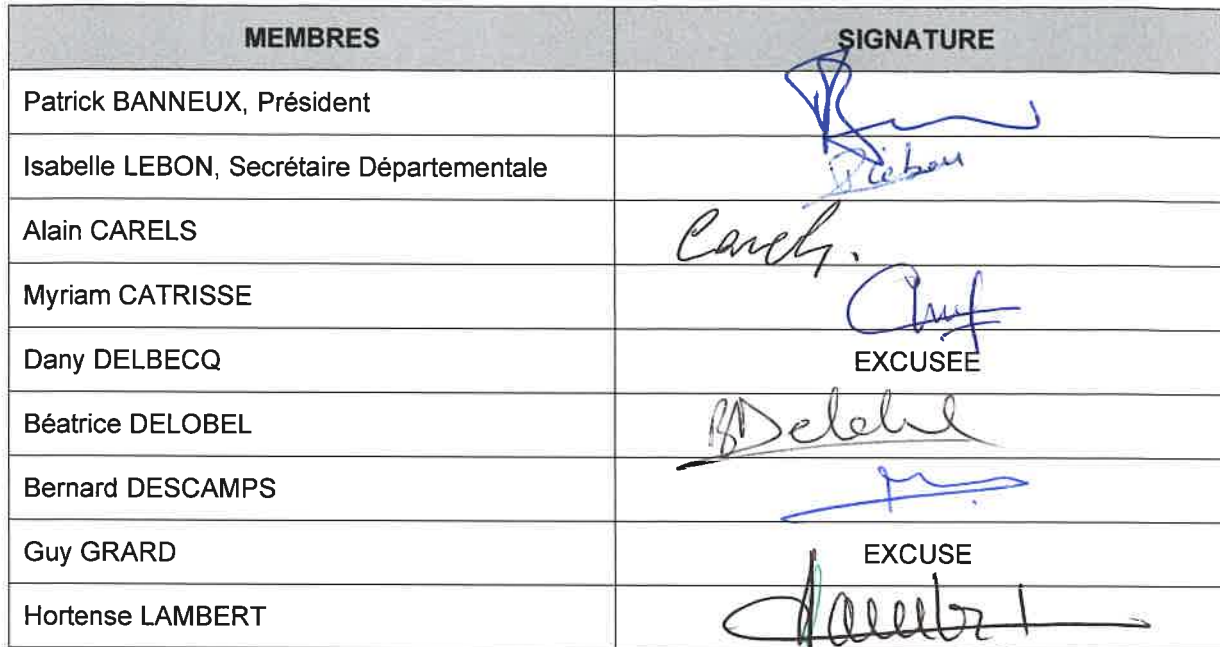 MEMBRES SIGNATURE
Patrick BANNEUX, Président
Isabelle LEBON, Secrétaire Départementale
Alain CARELS
Myriam CATRISSE
Dany DELBECQ EXCUSEE
Béatrice DELOBEL BDelobel
Bernard DESCAMPS
Guy GRARD EXCUSE
Hortense LAMBERT